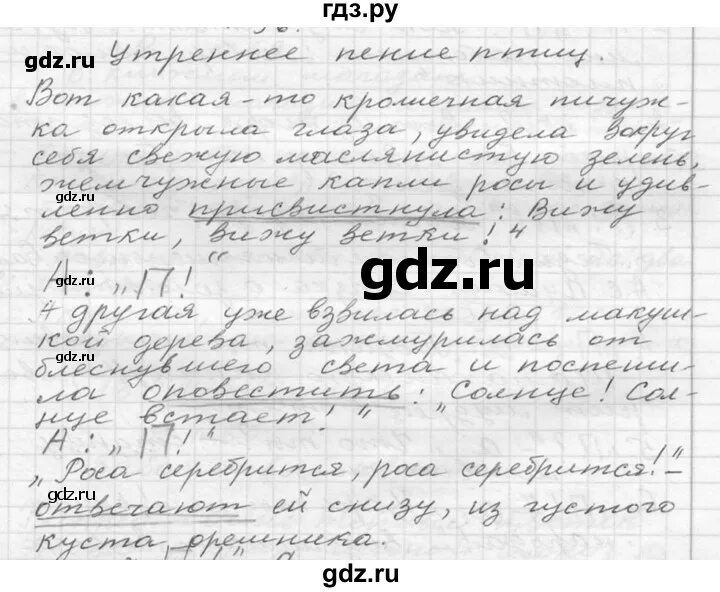 гдз.ру
Утреннее пение птиц.
Вот какая-то крошечная пичуж-
ка открыла глаза, увидела вокруг
себя свежую маслянистую зелень,
жемчужные капли росы и удив-
ленно присвистнула: Вижу
ветки, вижу ветки!"
А: „П!"
А другая уже взвилась над макуш-
кой дерева, зажмурилась от
блеснувшего света и поспеши-
ла оповестить: „Солнце! Сол-
нце встает!"
А: „П!"
„Роса серебрится, роса серебрится!"-
отвечают ей снизу, из густого
куста орешника.
gdz.ru
gdz.ru
gdz.ru
gdz.ru
gdz.ru
gdz.ru
gdz.ru
gdz.ru
gdz.ru
gdz.ru